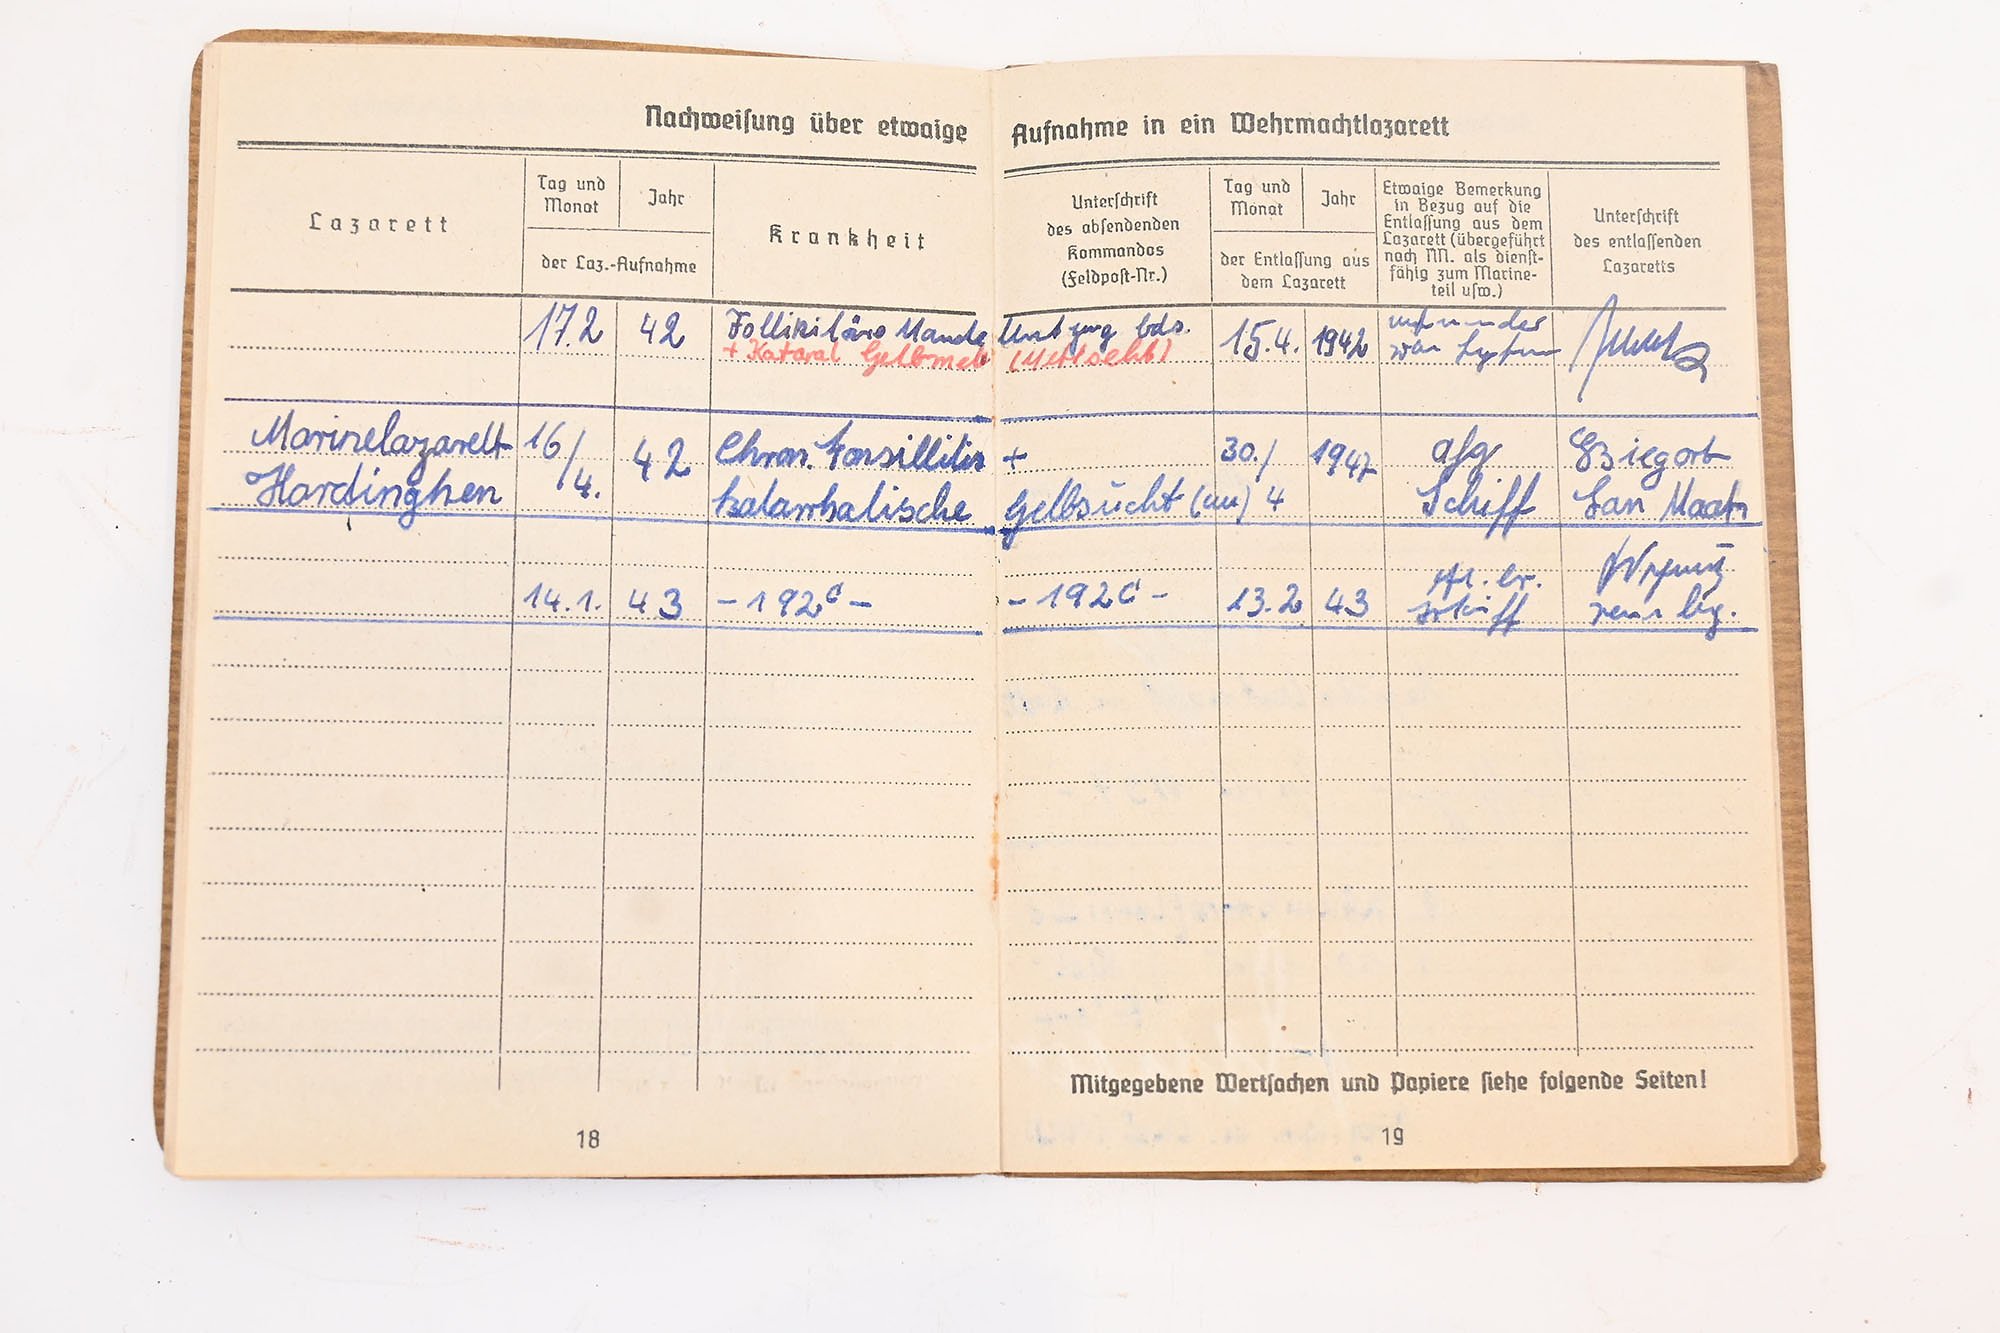 Nachweisung über etwaige Aufnahme in ein Wehrmachtlazarett
Lazarett
Tag und
Monat
Jahr
der Laz.-Aufnahme
Krankheit
Unterschrift
des absendenden
Kommandos
(Feldpost-Nr.)
Tag und
Monat
Jahr
der Entlassung aus
dem Lazarett
Etwaige Bemerkung
in Bezug auf die
Entlassung aus dem
Lazarett (übergeführt
nach NN. als dienst-
fähig zum Marine-
teil usw.)
Unterschrift
des entlassenden
Lazaretts
17.2 42 Follikuläre Mandel bds. 15.4. 1942
+ Kataral
Marinelazarett 16/ 42 Chron. Tonsillitis + 30./ 1942
Hardinghen 4. katarrhalische Gelbsucht 4 Schiff San Maat
14.1. 43 -192c- -192c- 13.2 43
Mitgegebene Wertsachen und Papiere siehe folgende Seiten!
18
19